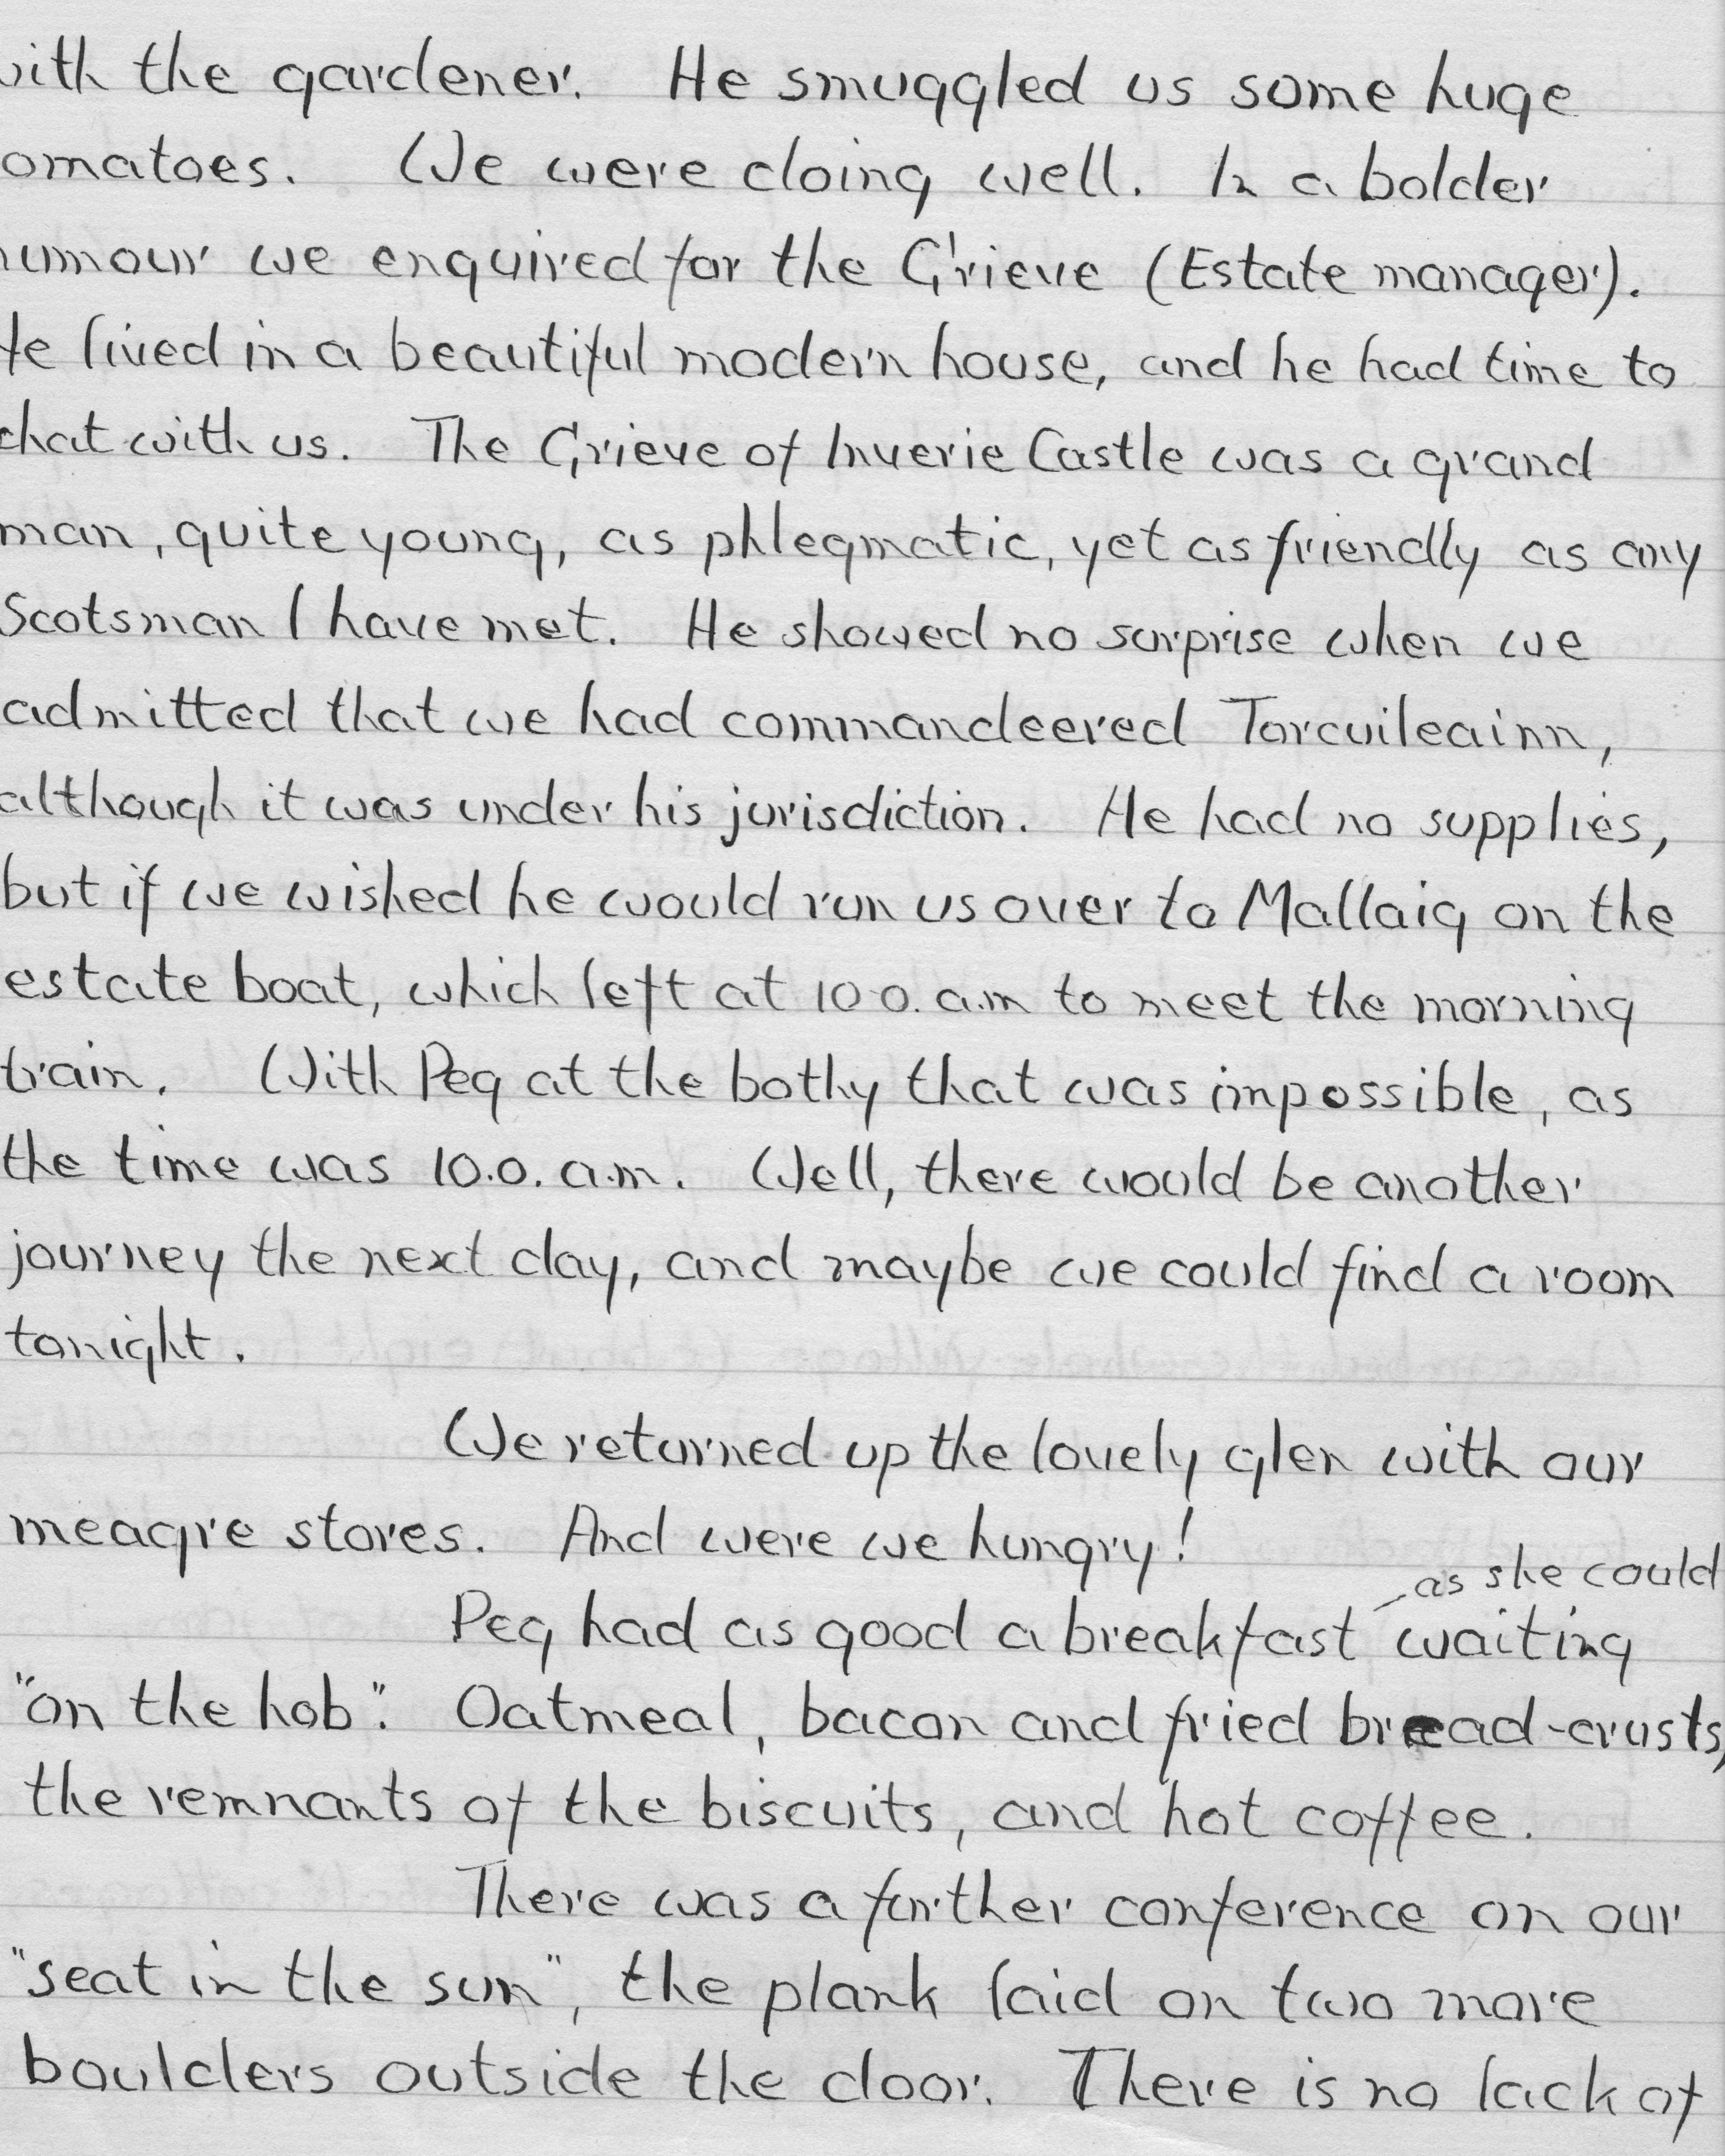 with the gardener. He smuggled us some huge
omatoes. We were doing well. In a bolder
humour we enquired for the Grieve (Estate manager).
He lived in a beautiful modern house, and he had time to
chat with us. The Grieve of Inverie Castle was a grand
man, quite young, as phlegmatic, yet as friendly as any
Scotsman I have met. He showed no surprise when we
admitted that we had commandeered Torcuileainn,
although it was under his jurisdiction. He had no supplies,
but if we wished he would run us over to Mallaig on the
estate boat, which left at 10 0. a.m to meet the morning
train. With Peg at the bothy that was impossible, as
the time was 10.0. a.m. Well, there would be another
journey the next day, and maybe we could find a room
tonight.
We returned up the lovely glen with our
meagre stores. And were we hungry!
as she could
Peg had as good a breakfast waiting
"on the hob". Oatmeal, bacon and fried bread-crusts,
the remnants of the biscuits, and hot coffee.
There was a further conference on our
"seat in the sun", the plank laid on two more
boulders outside the door. There is no lack of